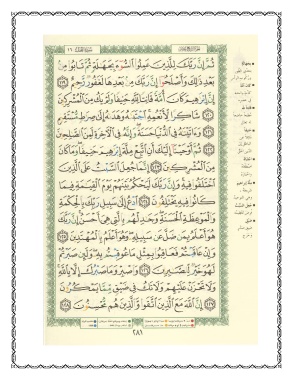 ثُمَّ إِنَّ رَبَّكَ لِلَّذِينَ عَمِلُوا۟ ٱلسُّوٓءَ بِجَهَـٰلَةٍ ثُمَّ تَابُوا۟ مِنۢ
بَعْدِ ذَٰلِكَ وَأَصْلَحُوٓا۟ إِنَّ رَبَّكَ مِنۢ بَعْدِهَا لَغَفُورٌ رَّحِيمٌ ١١٩
إِنَّ إِبْرَٰهِيمَ كَانَ أُمَّةً قَانِتًا لِّلَّهِ حَنِيفًا وَلَمْ يَكُ مِنَ ٱلْمُشْرِكِينَ
١٢٠ شَاكِرًا لِّأَنْعُمِهِ ٱجْتَبَىٰهُ وَهَدَىٰهُ إِلَىٰ صِرَٰطٍ مُّسْتَقِيمٍ
١٢١ وَءَاتَيْنَـٰهُ فِى ٱلدُّنْيَا حَسَنَةً وَإِنَّهُۥ فِى ٱلْـَٔاخِرَةِ لَمِنَ ٱلصَّـٰلِحِينَ
١٢٢ ثُمَّ أَوْحَيْنَآ إِلَيْكَ أَنِ ٱتَّبِعْ مِلَّةَ إِبْرَٰهِيمَ حَنِيفًا وَمَا كَانَ
مِنَ ٱلْمُشْرِكِينَ ١٢٣ إِنَّمَا جُعِلَ ٱلسَّبْتُ عَلَى ٱلَّذِينَ
ٱخْتَلَفُوا۟ فِيهِ وَإِنَّ رَبَّكَ لَيَحْكُمُ بَيْنَهُمْ يَوْمَ ٱلْقِيَـٰمَةِ فِيمَا
كَانُوا۟ فِيهِ يَخْتَلِفُونَ ١٢٤ ٱدْعُ إِلَىٰ سَبِيلِ رَبِّكَ بِٱلْحِكْمَةِ
وَٱلْمَوْعِظَةِ ٱلْحَسَنَةِ وَجَـٰدِلْهُم بِٱلَّتِى هِىَ أَحْسَنُ إِنَّ رَبَّكَ
هُوَ أَعْلَمُ بِمَن ضَلَّ عَن سَبِيلِهِۦ وَهُوَ أَعْلَمُ بِٱلْمُهْتَدِينَ ١٢٥
وَإِنْ عَاقَبْتُمْ فَعَاقِبُوا۟ بِمِثْلِ مَا عُوقِبْتُم بِهِۦ وَلَئِن صَبَرْتُمْ
لَهُوَ خَيْرٌ لِّلصَّـٰبِرِينَ ١٢٦ وَٱصْبِرْ وَمَا صَبْرُكَ إِلَّا بِٱللَّهِ
وَلَا تَحْزَنْ عَلَيْهِمْ وَلَا تَكُ فِى ضَيْقٍ مِّمَّا يَمْكُرُونَ
١٢٧ إِنَّ ٱللَّهَ مَعَ ٱلَّذِينَ ٱتَّقَوا۟ وَّٱلَّذِينَ هُم مُّحْسِنُونَ ١٢٨
٢٨١